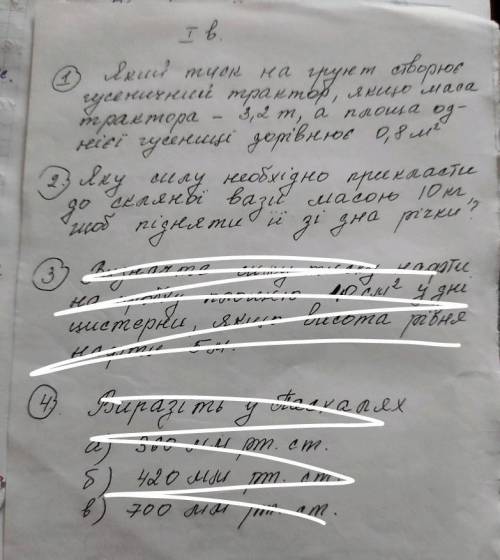 I в.
① Який тиск на грунт створює
гусеничний трактор, якщо маса
трактора - 3,2 т, а площа од-
нієї гусениці дорівнює 0,8 м²
② Яку силу необхідно прикласти
до скляної вази масою 10 кг,
щоб підняти її зі дна річки?
③ Визначте силу тиску нафти
на пробку площею 10 см² у дні
цистерни, якщо висота рівня
нафти 5 м.
④ Виразіть у Паскалях
а) 360 мм рт. ст.
б) 420 мм рт. ст.
в) 700 мм рт. ст.